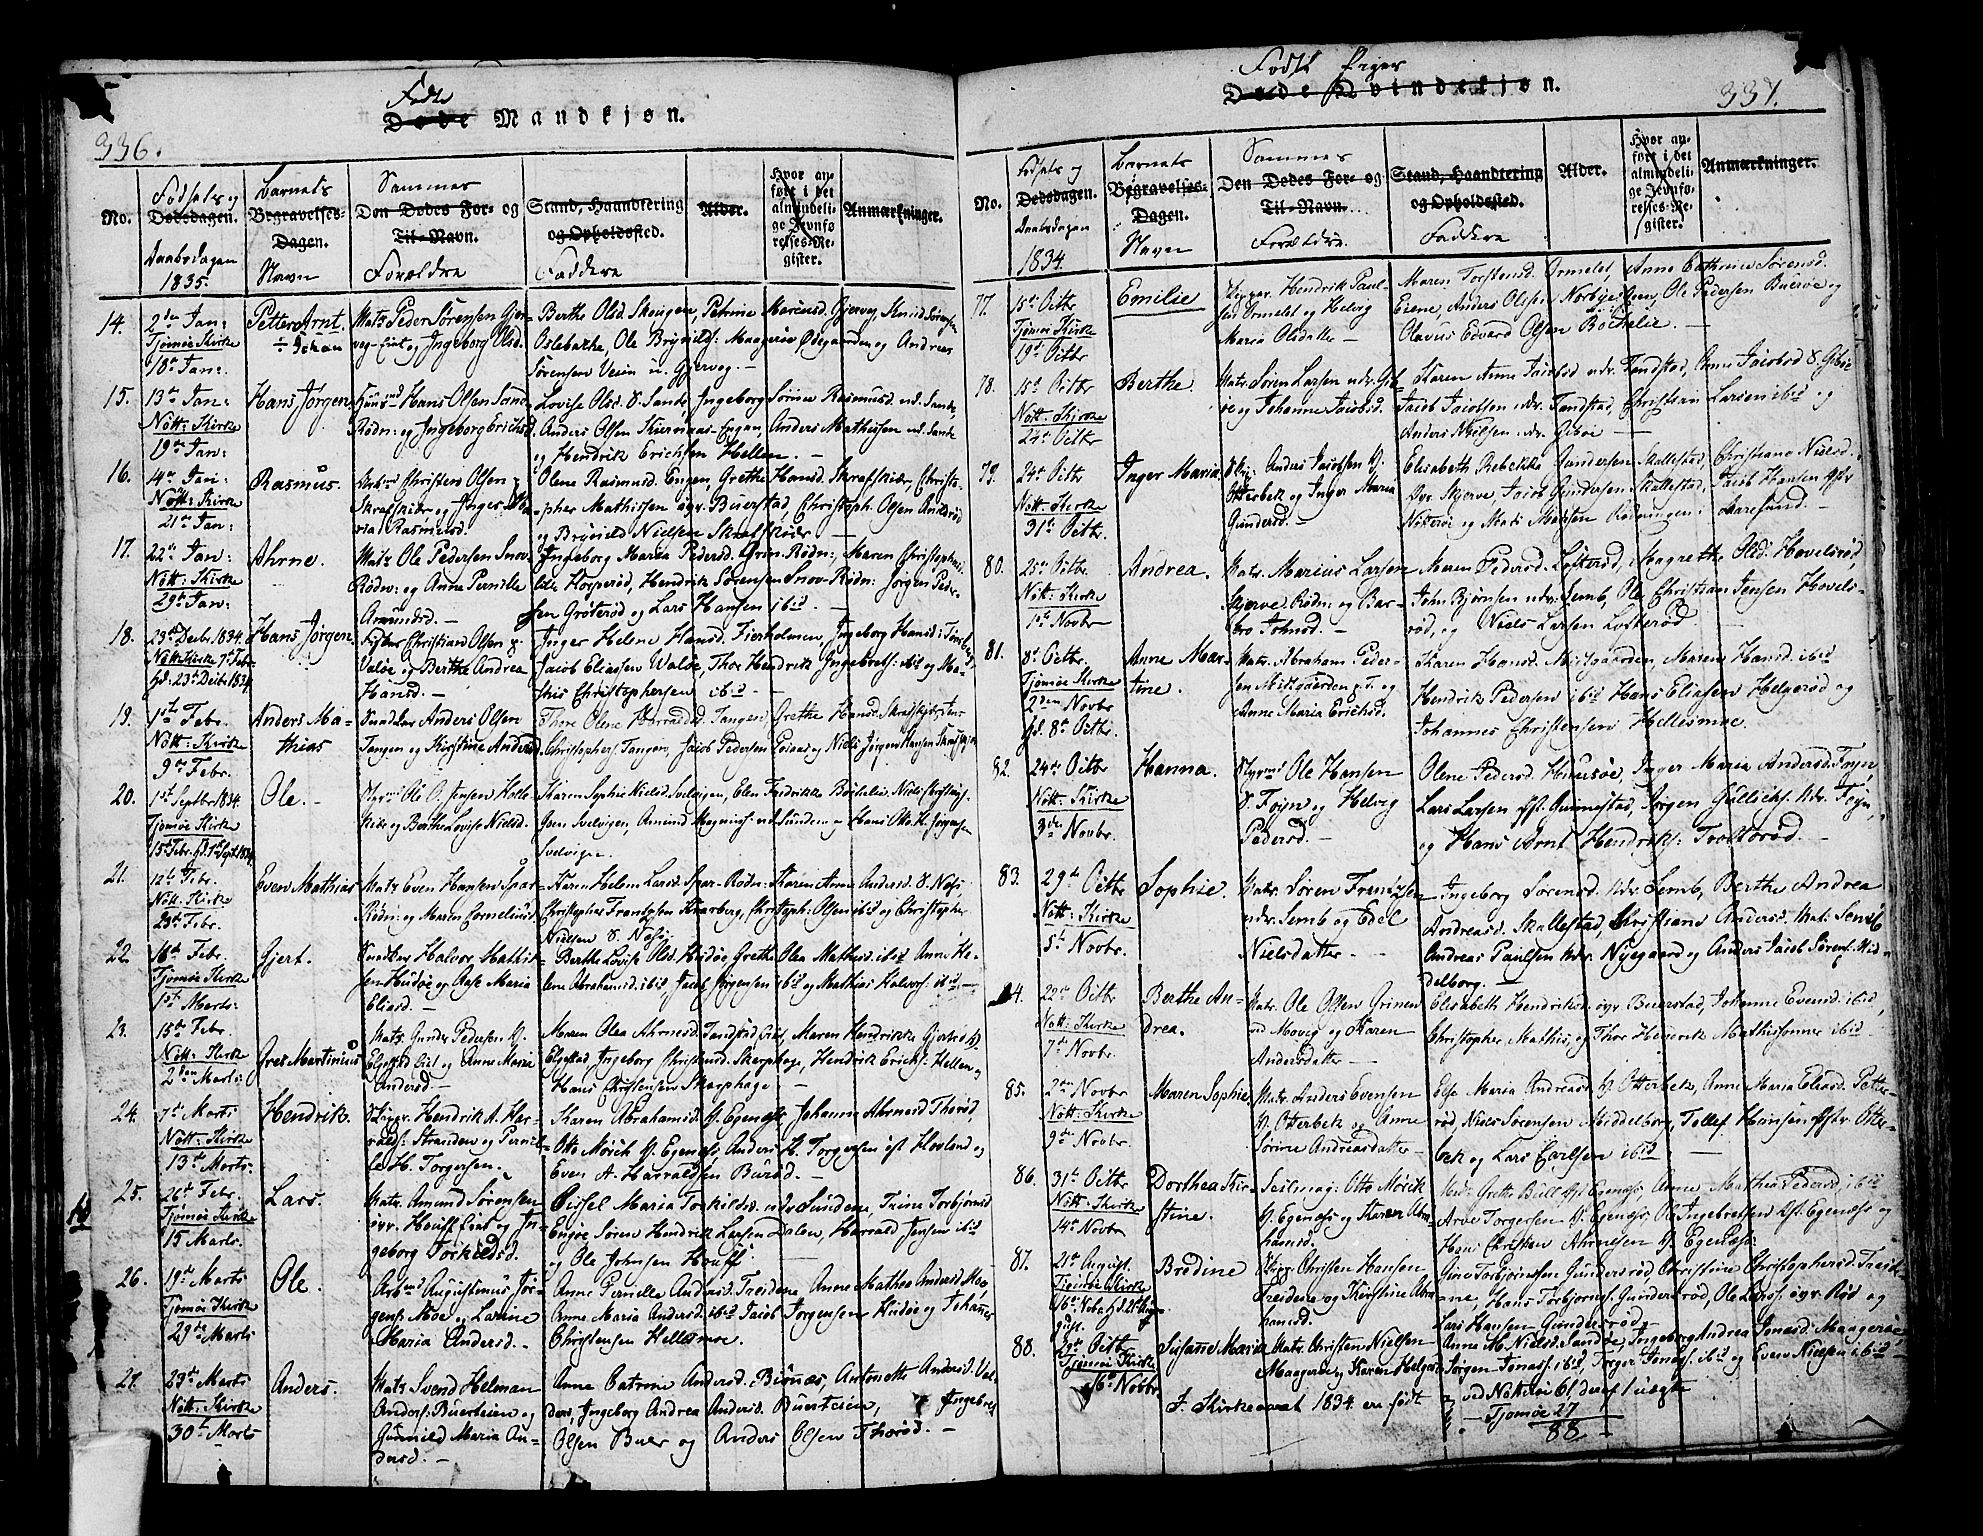 336.
Fødte
Døde Mandkjøn.
No.
Fødsels og
Dødsdagen.
Daabsdagen
1835.
Barnets
Begravelses-
Dagen.
Navn
Sammes
Den Dødes For- og
Til-Navn.
Forældre
Stand, Haandtering
og Opholdssted.
Faddere
Alder.
Hvor an-
ført i det
almindeli-
ge Jevnfø-
relses-Re-
gister.
Anmærkninger.
14.
2den Jan:
Tjømøe Kirke
18de Jan:
Petter Arnt
÷ Johan
Matr. Peder Sørensen Gjer-
veg og Ingeborg Olsd.
Berthe Olsd. Skougen, Petrine Marcusd. Gjerveg,
Oslebakke, Ole Brynilds: Maagerøe Ødegaarden og Andreas
Sørensen Veim u. Gjerveg. —
15.
13de Jan:
Nött: Kirke
19de Jan:
Hans Jørgen
Huusmd Hans Olsen Sande
Rødn: og Ingeborg Erichsd.
Lovise Olsd. S. Sande, Ingeborg Sørine Rasmusd. ud. Sande,
Anders Olsen Engen, Anders Mathisen ud. Sande
og Hendrik Erichsen Hellen. —
16.
4de Jan:
Nött: Kirke
21de Jan:
Rasmus.
Arb: Christen Olsen
Skrafskiær og Inger Ma-
ria Rasmusd.
Olene Rasmusd. Engen, Grethe Hansd. Skrafskiær, Christo-
pher Mathissen øvr. Buerstad, Christoph. Olsen Andebød
og Brynild Nielsen Skrafskiær —
17.
22de Jan:
Nött: Kirke
29de Jan:
Ahrne.
Matr. Ole Pedersen Snou
Rødn: og Anne Pernille
Amundsd. —
Ingeborg Maria Pedersd. Grim-Rødn:, Maren Christophers:
Hendrik Sørensen Snou-Rødn: Jørgen Peder-
sen Grøterød og Lars Hansen ibid —
18.
23de Decbr 1834.
Nött: Kirke 7de Febr.
hd. 23de Decbr 1834
Hans Jørgen
Christian Olsen
Valøe og Berthe Andrea
Hansd. —
Inger Helene Hansd. Fierholmen, Ingeborg Hansd: Tønsberg,
Jacob Eliasen Valøe, Thor Hendrik Ingebrets: ibid og Ma-
this Christophersen ibid —
19.
1ste Febr.
Nött: Kirke
9de Febr.
Anders Ma-
thias
Anders Olsen
Tangen og Kirstine Andersd.
Thore Olene Harraldsd. Tangen, Grethe Hansd. Skrafskiær, Jens
Christophers: Tangen, Jacob Pedersen og Niels Jørgen Hansen
20.
1ste Septbr 1834.
Tjømøe Kirke
15de Febr. hd. 1ste Sept. 1834.
Ole. —
Styrmd Ole Jensen Holte-
Kiær og Berthe Lovise Nielsd.
Karen Sophie Nielsd. Svelvigen, Elen Fridrikke Böthelie, Niels
Svelvigen, Amund Magnus: ud. Sundene og Hans Jørgensen
Svelvigen.
21.
12te Febr.
Nött: Kirke
23de Febr.
Even Mathias
Matr. Even Hansen Spar-
Rødn: og Maren Corneliusd.
Karen Helene Larsd. Spar-Rødn: Karen Anne Andersd. S. Nøsi,
Christopher Frandsen Knarberg, Christoph: Olsen ibid og Christopher
Nielsen S. Nøsi.
22.
16de Febr.
Tjømøe Kirke
1ste Marts.
Gjert.
Halvor Mathis-
sen Hudøe og Aase Maria
Eliasd.
Berthe Lovise Olsd. Hudøe, Grethe Olea Mathisd. ibid, Anne He-
lene Abrahamsd. ibid, Jacob Jørgensen ibid og Mathias Halvors: ibid —
23.
15de Febr.
Nött: Kirke
2den Marts:
Martinius
Matr. Gunder Pedersen
Elgestad og Anne Maria
Andersd. —
Maren Olea Ahrnesd. Tandstad, Maren Hendrikke
Elgestad, Ingeborg Christensd. Skarphage, Hendrik Erichs: Hellen og
Hans Christensen Skarphage —
24.
7de Marts
Nött: Kirke
13de Marts:
Hendrik.
Skipr. Hendrik A. Har-
ralds: Stranden og Pernil-
le H. Torgersen. —
Karen Abrahamsd. H. Egenæs, Johanna Ahrnesd. Thorød,
Otto Mörch H. Egenæs, Anders H. Torgersen Hovland og
Even A. Harraldsen Buród. —
25.
26de Febr.
Tjømøe Kirke
15 Marts.
Lars.
Matr. Amund Sørensen
øvr. Houff og In-
geborg Torkildsd.
Sissel Maria Torkildsd. Sundene, Trine Torbjørnsd.
Engøe Søren Hendrik Larsen Dalen, Harrald Jensen ibid
og Ole Johnsen Houff.
26.
19de Marts
Tjømøe Kirke
29de Marts
Ole.
Arbmd Augustinus Jør-
gens: Moe og Lovine
Maria Andersd. —
Anne Pernelle Andersd. Treidene, Anne Mathea Andersd. Moe,
Anne Maria Andersd. ibid Jacob Jørgensen Hudøe og Johannes
Christensen Hellesmoe.
27.
23de Marts
Nött: Kirke
30te Marts
Anders.
Matr. Svend Helman
Anders: Buersteien og
Gunnild Maria An-
dersd. —
Anne Catrine Andersd. Biønæs, Antonette Andersd.
Ingeborg Andrea Andersd. Buersteien, Ingebret
Olsen Buer og Anders Olsen Thorød. —
337.
Fødte Piger
Døde Kvindekjøn.
No.
Fødsels og
Dødsdagen.
Daabsdagen
1834.
Barnets
Begravelses-
Dagen.
Navn
Sammes
Den Dødes For- og
Til-Navn.
Forældre.
Stand, Haandtering
og Opholdssted.
Faddere
Alder.
Hvor an-
ført i det
almindeli-
ge Jevnfø-
relses-Re-
gister.
Anmærkninger.
77.
15de Octbr
Tjømøe Kirke
19de Octbr
Emilie
Skippr. Hendrik Paul-
sen Ormelet og Helvig
Maria Olsdatter —
Maren Torstensd. Ormelet, Anne Cathrine Sørensd.
Eiene, Anders Olsen Norbÿe, Ole Pedersen Buerøe og
Olavus Edvard Olsen Böthelie. —
78.
15de Octbr
Nött: Kirke
24de Octbr
Berthe.
Matr. Søren Larsen ndr. Gib-
øe og Johanne Jacobsd.
Karen Anne Jacobsd ndr. Tandstad, Anne Jacobsd S. Giböe
Jacob Jacobsen ndr. Tandstad, Christian Larsen ibid og
Anders Nielsen ndr. Giböe —
79.
24de Octbr
Nött: Kirke
31te Octbr.
Inger Maria
Anders Jacobsen H.
Otterbek og Inger Maria
Gundersd. —
Elisabeth Rebekka Gundersen Skallestad, Christiane Nielsd.
Skjerve, Jacob Gundersen Skallestad, Jacob Hansen
Nötterøe og Mads Madsen Rødningen: Aarøsund. —
80.
25de Octbr
Nött: Kirke
1ste Novbr
Andrea.
Matr. Marius Larsen
Skjerve Rødn: og Bar-
bro Johnsd. —
Maren Pedersd. Löfterød, Magrethe Olsd. Hovelsrød,
John Bjørnsen ndr. Semb, Ole Christian Jensen Hovels-
rød, og Niels Larsen Löfterød. —
81.
8de Octbr
Tjømøe Kirke
2den Novbr
hd. 8de Octbr.
Anne Mar-
tine.
Matr. Abraham Peder-
sen Midtgaarden og
Anne Maria Erichsd.
Karen Hansd. Midtgaarden, Maren Hansd. ibid
Hendrik Pedersen ibid Hans Eliasen Helgerød og
Johannes Christensen Hellesmoe.
82.
24de Octbr
Nött: Kirke
3die Novbr.
Hanna.
Styrmd Ole Hansen
S. Foÿn og Helvig
Pedersd. —
Olene Pedersd. Huusøe, Inger Maria Andersd. Foÿn,
Lars Larsen Gunnestad, Jørgen Gullichs: Ndr. Foÿn,
og Hans Arnt Hendriks: Tvolterød. —
83.
29de Octbr
Nött: Kirke
5te Novbr.
Sophie.
Matr. Søren Frandsen
ndr. Semb og Edel
Nielsdatter —
Ingeborg Sørensd. Ndr. Semb, Berthe Andrea
Andreasd. Skallestad, Christiane Andersd. Mat: Semb
Andreas Paulsen Ndr. Nyegaard og Anders Jacob Sørens: Mid-
delborg. —
84.
22de Octbr
Nött: Kirke
7de Novbr.
Berthe An-
drea.
Matr. Ole Olsen Grinen
ud Movig og Karen
Andersdatter —
Elisabeth Hendriksd. øvr. Buerstad, Johanne Evensd. ibid,
Christopher Mathis: og Thor Hendrik Mathissønner ibid
85.
2den Novbr
Nött: Kirke
9de Novbr.
Maren Sophie.
Matr. Anders Evensen
H. Otterbek og Anne
Sørine Andreasdatter —
Else Maria Andreasd. H. Otterbek, Anne Maria Eliasd. Petter-
rød, Niels Sørensen Middelborg, Tollef Hansen Otter-
bek og Lars Carlsen ibid —
86.
31te Octbr
Nött: Kirke
14de Novbr
Dorthea Kir-
stine.
Seilmag: Otto Mörch
H. Egenæs og Karen Abra-
hamsd.
Grethe Bull Egenæs, Anne Mathea Pedersd. ibid
Arve Torgersen H. Egenæs, Ole Ingebretsen Egenæs og
Hans Christian Ahrnesen H. Egenæs.
87.
21de August.
Tjømøe Kirke
16de Novbr. hd. 21de Au-
gust.
Bredine
Skipr. Christen Hansen
Treidene og Kirstine Abra-
hamsd.
Gine Torbjørnsen Gundersrød, Christine Christophersd. Treide-
ne, Hans Torbjørns: Gundersrød, Ole Larss: øvr. Rød og
Lars Hansen Gundersrød. —
88.
29de Octbr
Tjømøe Kirke
16de Novbr
Susanne Maria
Matr. Christen Nielsen
Maagerøe og Karen Helgesd.
Anne M. Nielsd. Sandøe, Ingeborg Andrea Jonasd. Maagerøe,
Jørgen Jonas: ibid Torger Jonas: ibid og Even Nielsen ibid
I Kirkeaaret 1834 ere født
ved Nötterøe 61 deraf 1 uægte
— Tjømøe 27
88 —